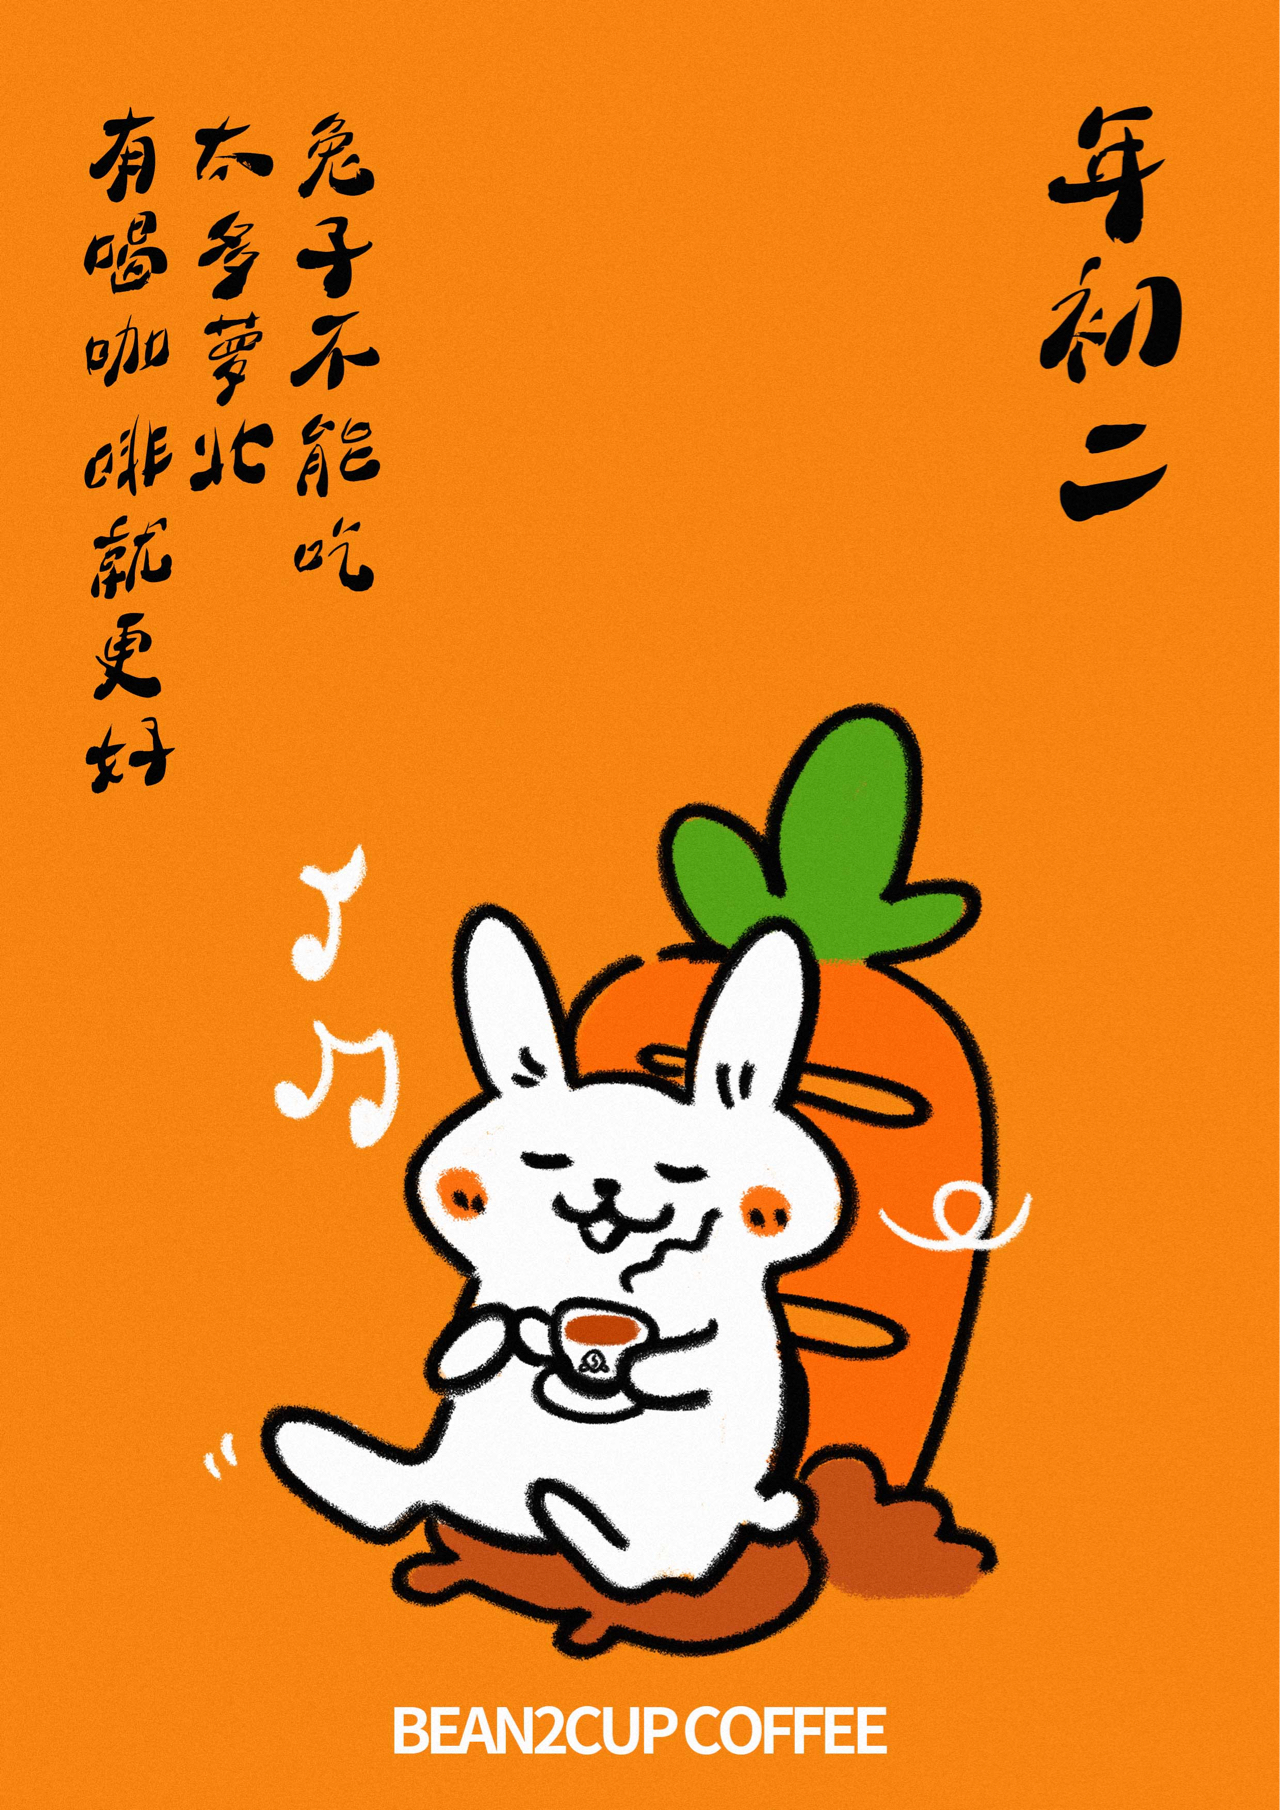 年初二
兔子不能吃
太多萝北
有喝咖啡就更好
BEAN2CUP COFFEE